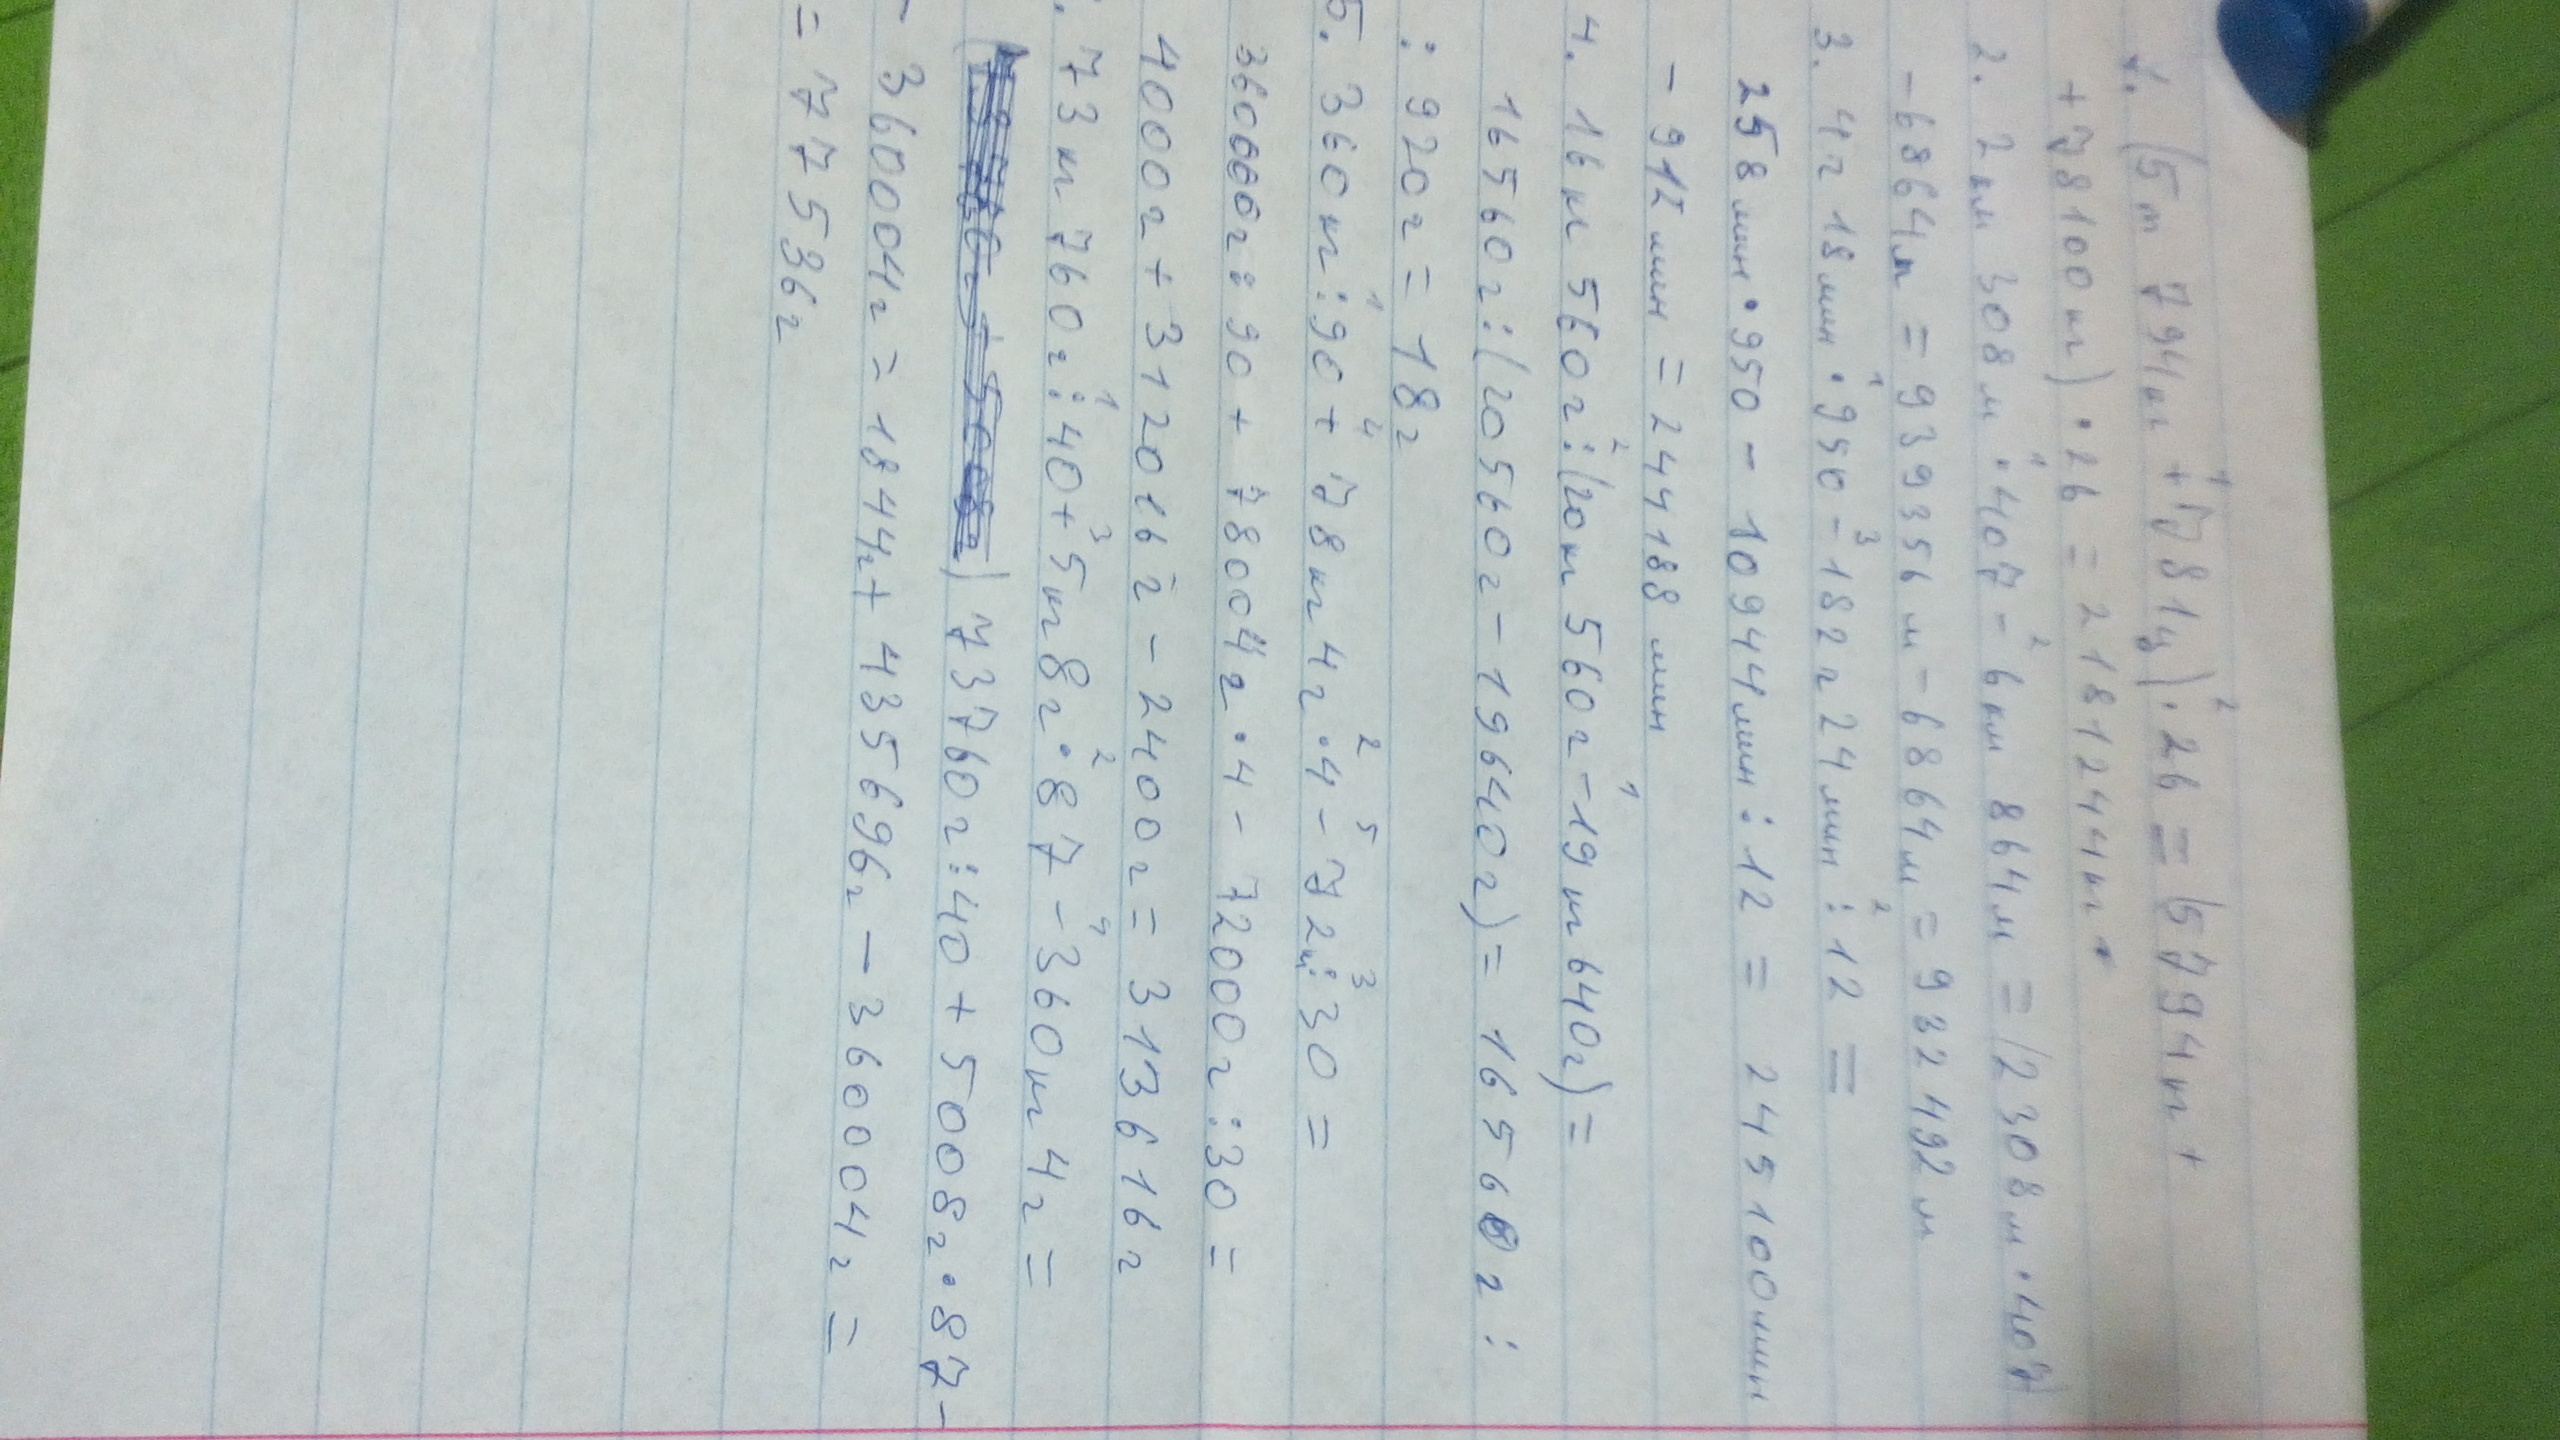 1. (5т 794кг + 781ц) · 26 = (5794кг +
+ 78100кг) · 26 = 2181244кг.
2. 2км 308м · 407 - 6км 864м = (2308м · 407)
- 6864м = 939356м - 6864м = 932492м
3. 4ч 18мин · 950 - 182ч 24мин : 12 =
258мин · 950 - 10944мин : 12 = 245100мин
- 912мин = 244188мин
4. 16кг 560г : (20кг 560г - 19кг 640г) =
16560г : (20560г - 19640г) = 16560г :
: 920г = 18г
5. 360кг : 90 + 78кг 4г · 4 - 72кг : 30 =
360000г : 90 + 78004г · 4 - 72000г : 30 =
4000г + 312016г - 2400г = 313616г
73кг 760г : 40 + 5кг 8г · 87 - 360кг 4г =
73760г : 40 + 5008г · 87 -
- 360004г = 1844г + 435696г - 360004г =
= 77536г